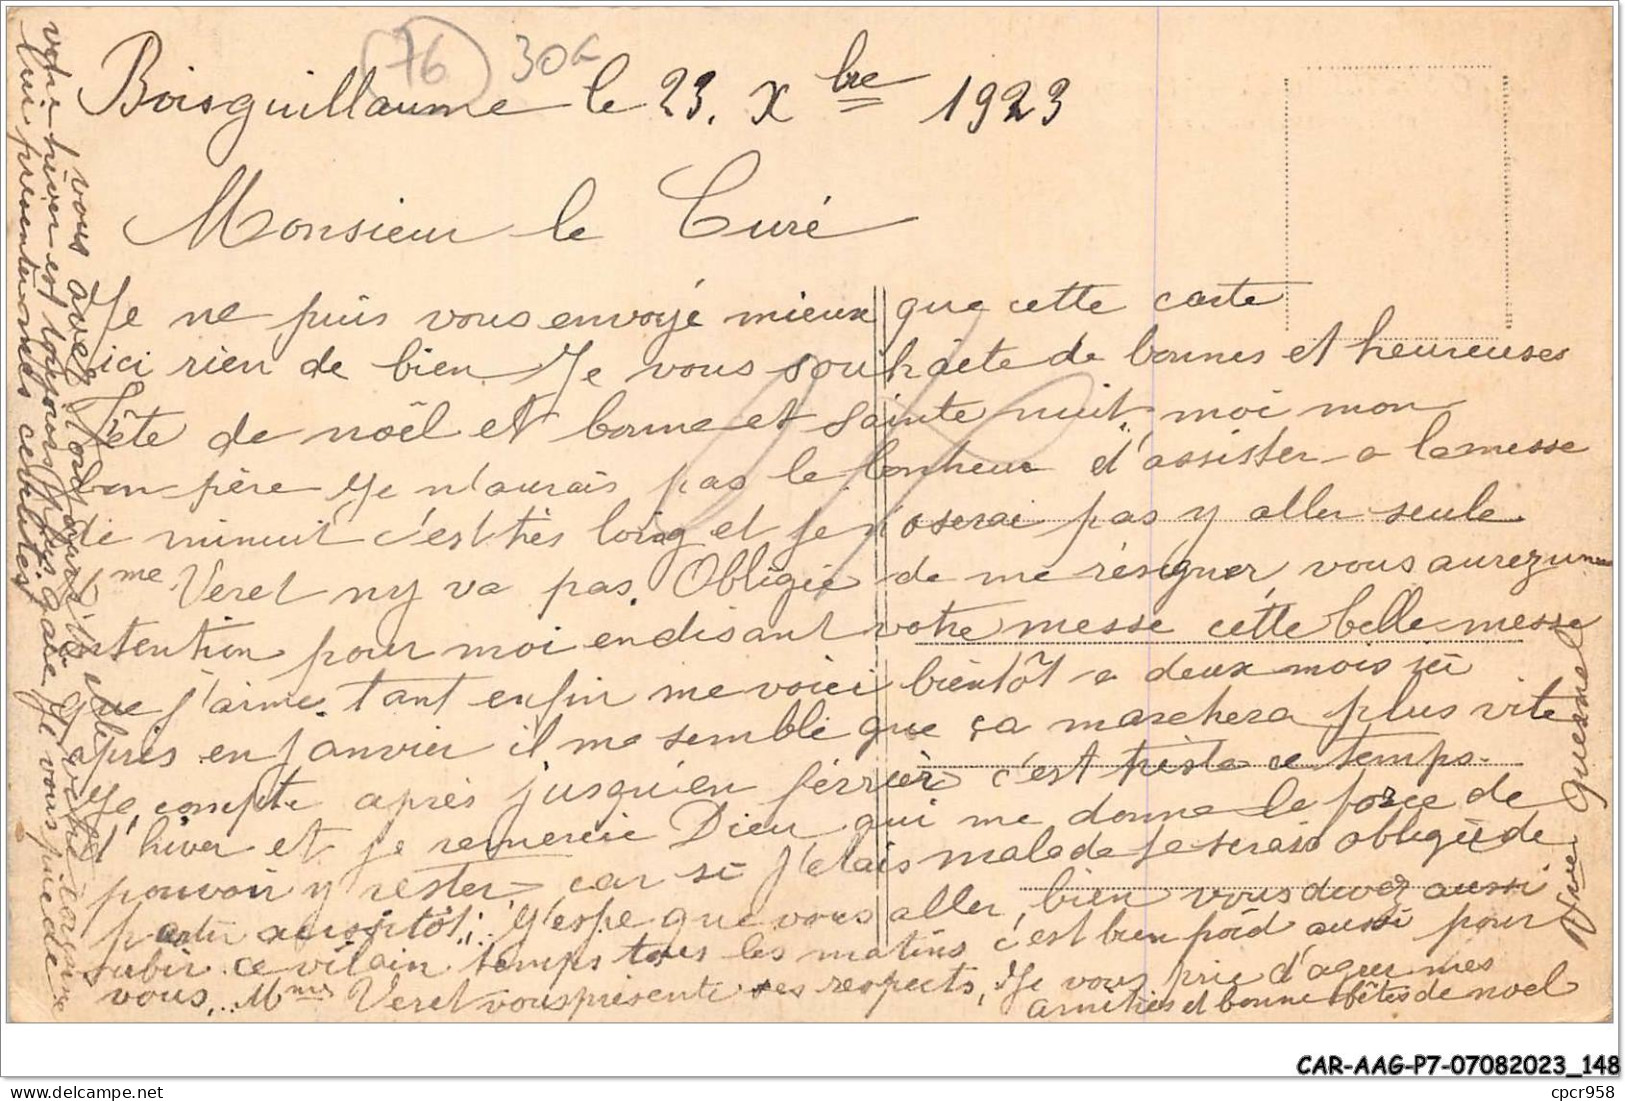 76 30€
Boisguillaume le 23. Xbre 1923
Monsieur le Curé
Je ne puis vous envoyé mieux que cette carte
ici rien de bien. Je vous souhaite de bonnes et heureuses
Fête de noël et bonne et Sainte nuit. moi mon
bon père Je n'aurais pas le bonheur d'assister a la messe
de minuit c'est très loing et je n'oserai pas y aller seule.
me Veret ny va pas. Obligée de me résigner, vous aurez une
intention pour moi en disant votre messe cette belle messe
que j'aime tant enfin me voici bientôt a deux mois ici
après en Janvier il me semble que ça marchera plus vite
Je compte après jusqu'en février c'est triste ce temps.
l'hiver et je remercie Dieu qui me donne la force de
pouvoir y rester, car si j'étais malade je serais obligée de
partir aussitôt. J'espe que vous aller bien vous devez aussi
subir ce vilain temps tous les matins c'est bien froid aussi pour
vous. Mme Veret vous présente ses respects, Je vous prie d'agrer mes
amitiés et bonne fêtes de noel
Quesnel
vous avez
votre hiver est toujours plus gaie Je vous